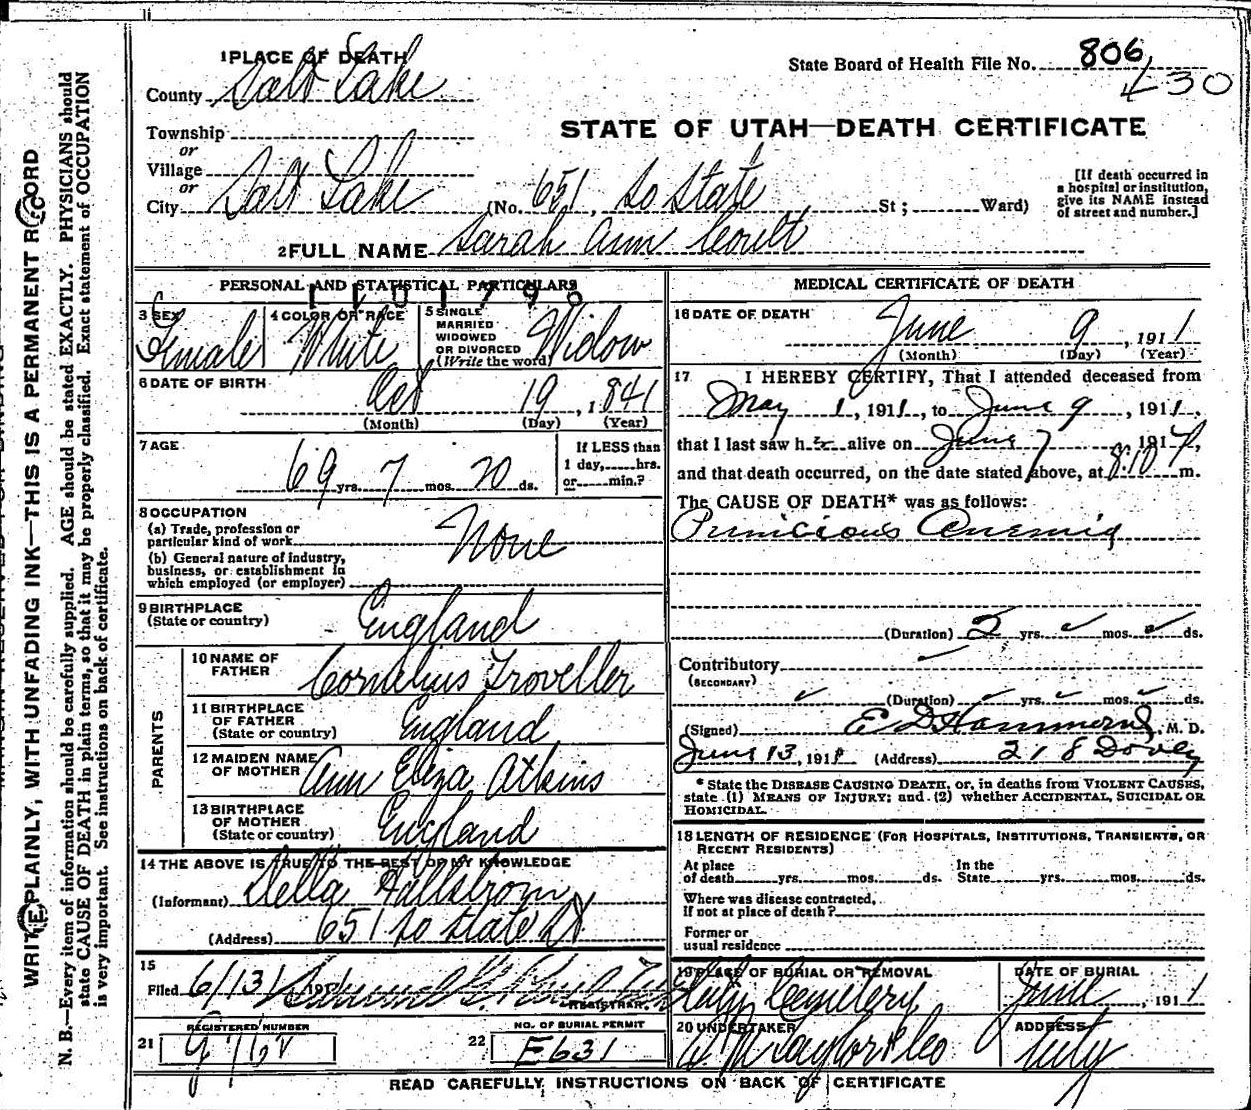 1 PLACE OF DEATH
State Board of Health File No. 806
430
County Salt Lake
STATE OF UTAH—DEATH CERTIFICATE
Township
or
Village
or
City Salt Lake (No. 651, So State St; Ward)
[If death occurred in
a hospital or institution,
give its NAME instead
of street and number.]
2 FULL NAME Sarah Ann Coult
PERSONAL AND STATISTICAL PARTICULARS
3 SEX
Female
4 COLOR OR RACE
White
5 SINGLE
MARRIED
WIDOWED
OR DIVORCED
(Write the word)
Widow
6 DATE OF BIRTH
Oct 19, 1841
(Month) (Day) (Year)
7 AGE
69 yrs. 7 mos. 20 ds.
If LESS than
1 day, hrs.
or min.?
8 OCCUPATION
(a) Trade, profession or
particular kind of work
None
(b) General nature of industry,
business, or establishment in
which employed (or employer)
9 BIRTHPLACE
(State or country)
England
PARENTS
10 NAME OF
FATHER
Cornelius Troveller
11 BIRTHPLACE
OF FATHER
(State or country)
England
12 MAIDEN NAME
OF MOTHER
Ann Eliza Atkins
13 BIRTHPLACE
OF MOTHER
(State or country)
England
14 THE ABOVE IS TRUE TO THE BEST OF MY KNOWLEDGE
(Informant) Della Hallstrom
(Address) 651 So State St
15
Filed 6/13/ 191
REGISTRAR.
21 REGISTERED NUMBER
22 NO. OF BURIAL PERMIT
E631
MEDICAL CERTIFICATE OF DEATH
16 DATE OF DEATH
June 9, 1911
(Month) (Day) (Year)
17 I HEREBY CERTIFY, That I attended deceased from
May 1, 1911, to June 9, 1911,
that I last saw her alive on June 7 191,
and that death occurred, on the date stated above, at 8:10 m.
The CAUSE OF DEATH* was as follows:
Pernicious Anemia
(Duration) 2 yrs. mos. ds.
Contributory
(SECONDARY)
(Duration) yrs. mos. ds.
(Signed) E D Hammond, M. D.
June 13, 1911 (Address) 218 Dooly
* State the DISEASE CAUSING DEATH, or, in deaths from VIOLENT CAUSES,
state (1) MEANS OF INJURY; and (2) whether ACCIDENTAL, SUICIDAL OR
HOMICIDAL.
18 LENGTH OF RESIDENCE (FOR HOSPITALS, INSTITUTIONS, TRANSIENTS, OR
RECENT RESIDENTS)
At place
of death yrs. mos. ds.
In the
State yrs. mos. ds.
Where was disease contracted,
if not at place of death?
Former or
usual residence
19 PLACE OF BURIAL OR REMOVAL
City Cemetery
DATE OF BURIAL
June, 1911
20 UNDERTAKER
Taylor & Co
ADDRESS
City
READ CAREFULLY INSTRUCTIONS ON BACK OF CERTIFICATE
WRITE PLAINLY, WITH UNFADING INK—THIS IS A PERMANENT RECORD
N. B.—Every item of information should be carefully supplied. AGE should be stated EXACTLY. PHYSICIANS should
state CAUSE OF DEATH in plain terms, so that it may be properly classified. Exact statement of OCCUPATION
is very important. See instructions on back of certificate.